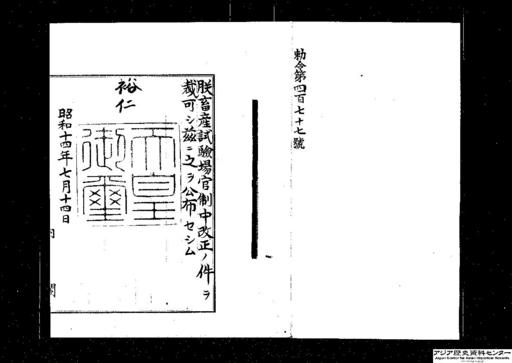 勅令第四百七十七號
朕畜産試驗場官制中改正ノ件ヲ
裁可シ茲ニ之ヲ公布セシム
裕仁
天皇
御璽
昭和十四年七月十四日
内閣
アジア歴史資料センター
Japan Center for Asian Historical Records